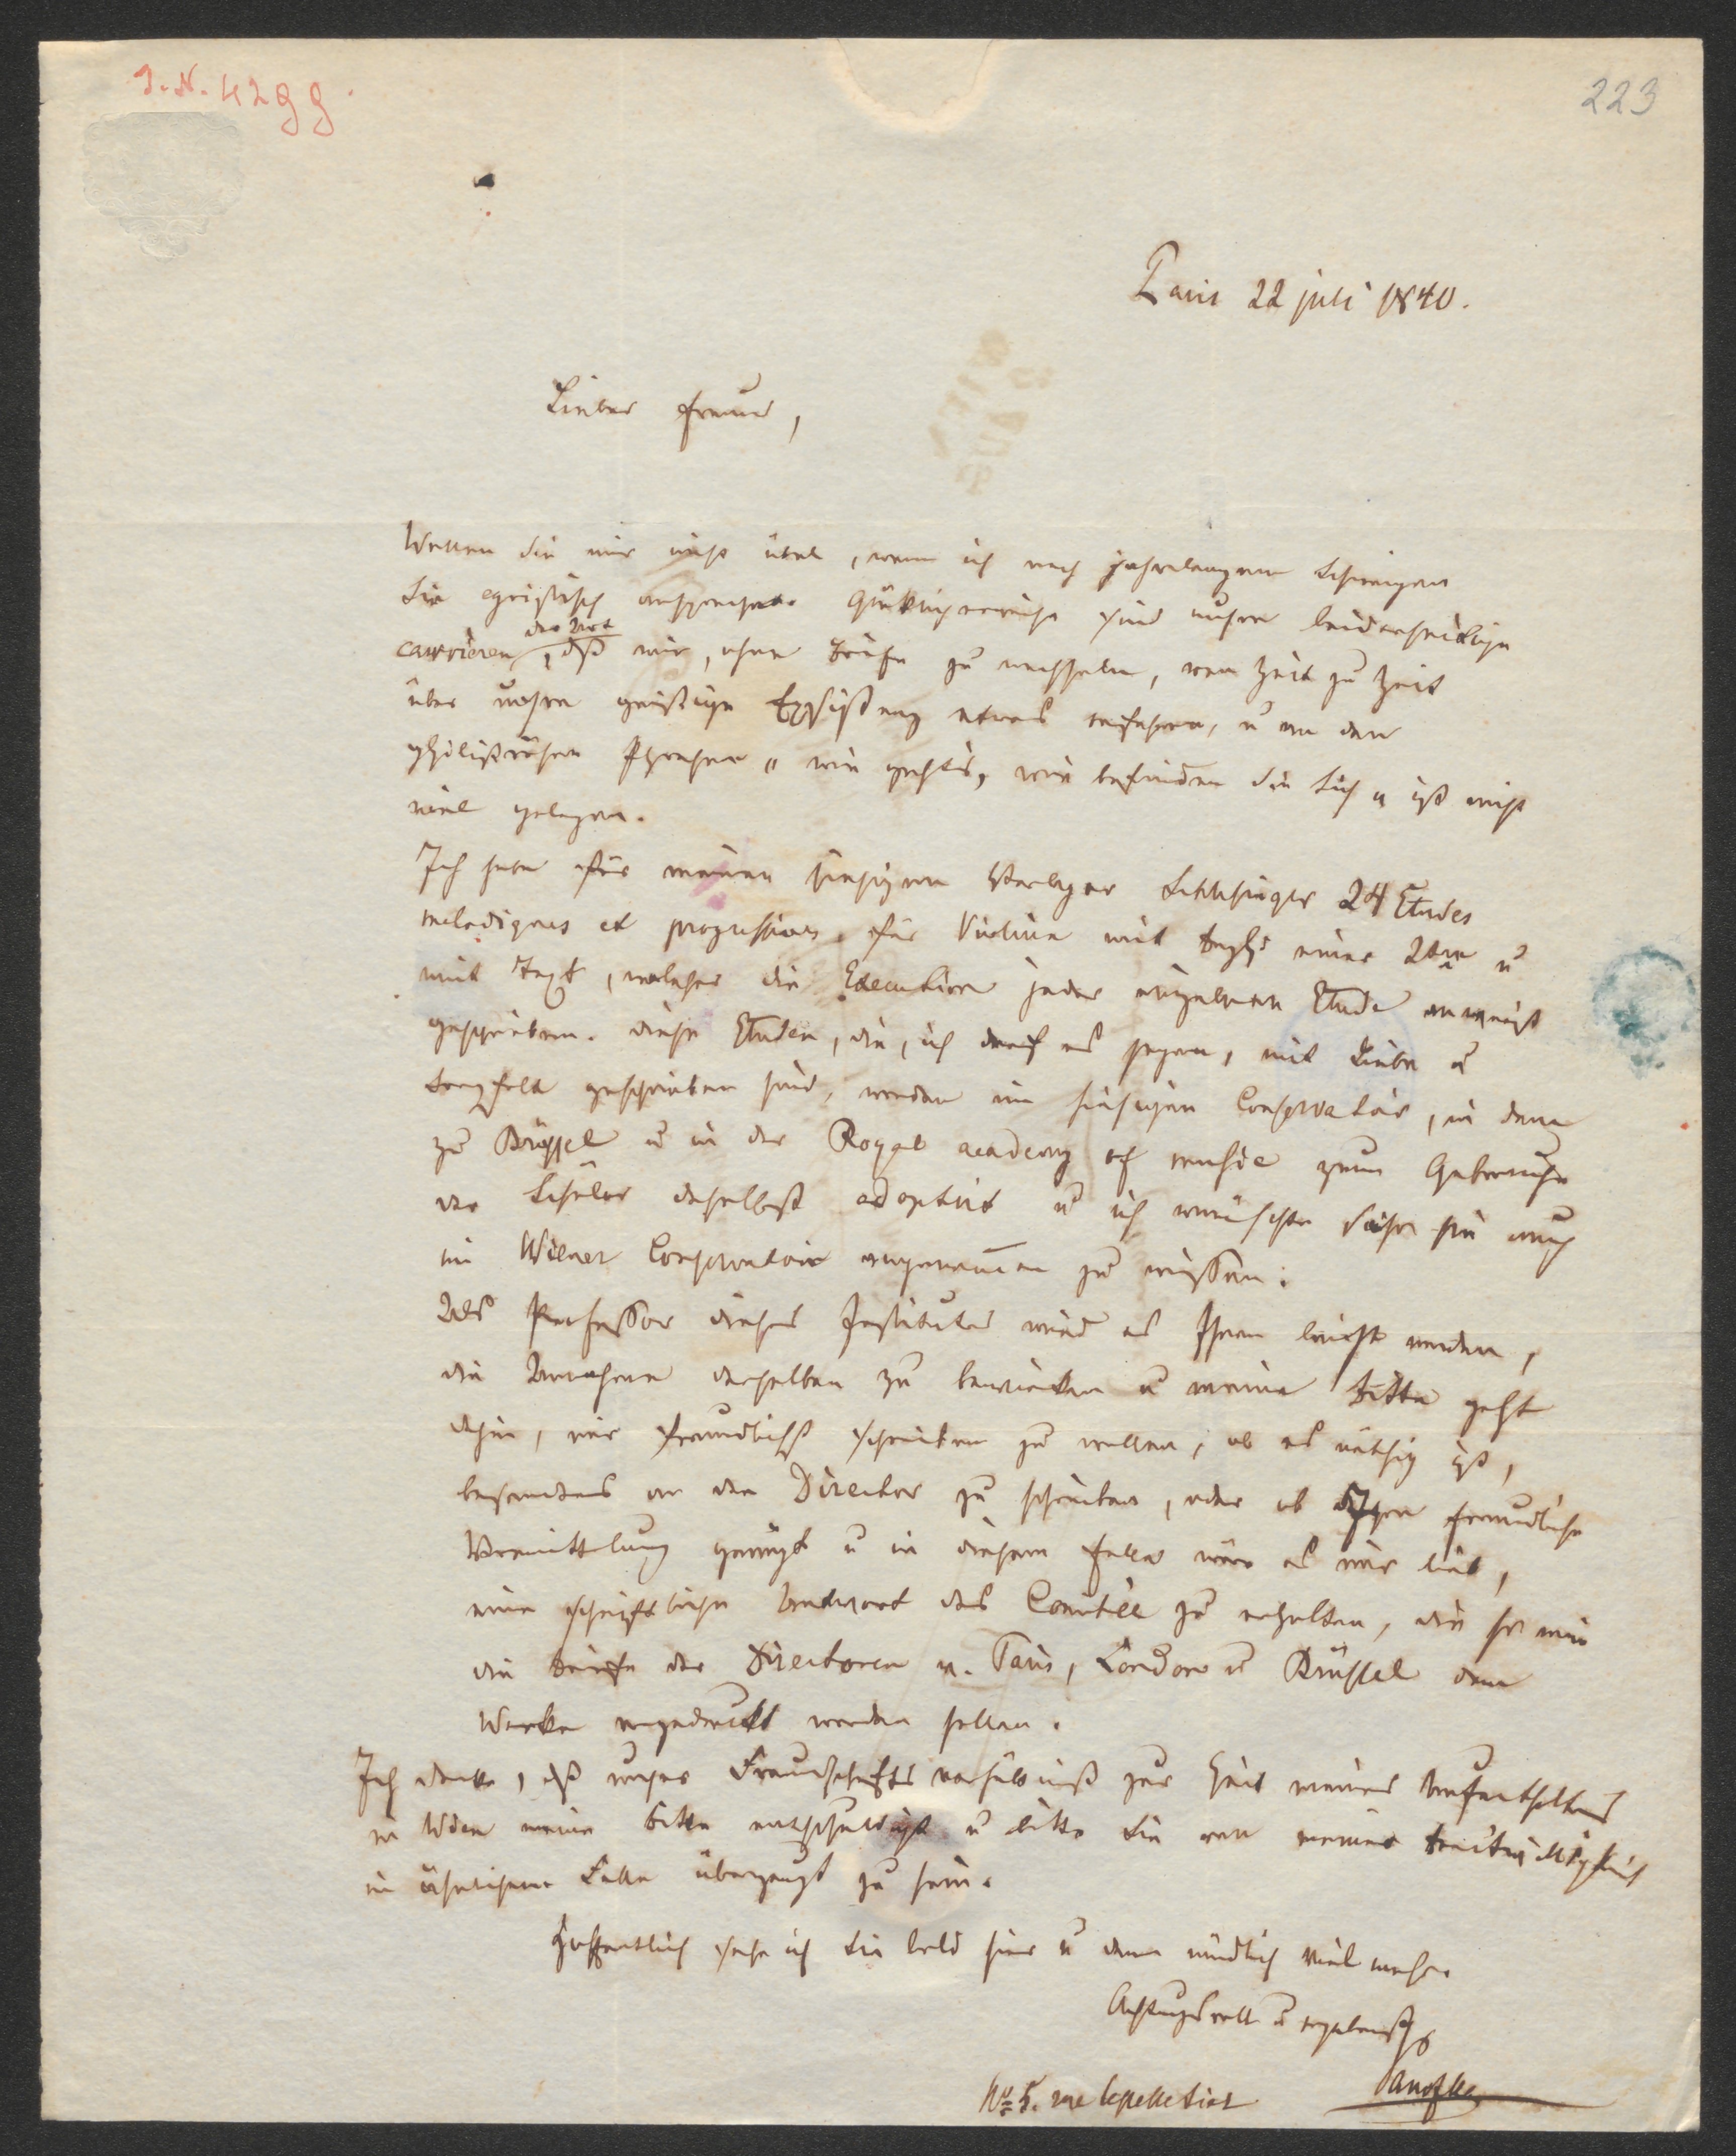 I.N. 4299.
223
Paris 22 juli 1840.
Lieber Freund,
Wenn Sie mir nicht übel, wenn ich nach jahrelangem Schweigen
Sie egoistisch anspreche. Glücklicherweise sind unsre beiderseitigen
carrièren der Art, daß wir, ohne Briefe zu wechseln, von Zeit zu Zeit
über unsre geistige Existenz etwas erfahren, u an den
philiströsen Phrasen „wie gehts, wie befinden Sie Sich" ist nicht
viel gelegen.
Ich habe für meinen hiesigen Verleger Schlesinger 24 Etudes
melodiques et progressives für Violine mit Begl: einer 2ten u
mit Text, welcher die Execution jeder einzelnen Etude anweist
geschrieben. Diese Etuden, die, ich darf es sagen, mit Liebe u
Sorgfalt geschrieben sind, werden im hiesigen Conservatoir, in dem
zu Brüssel u in der Royal academy of music zum Gebrauche
der Schüler daselbst adoptirt u ich wünschte sie auch
im Wiener Conservatoir angenommen zu wissen.
Als Professor dieses Institutes wird es Ihnen leicht werden,
die Annahme derselben zu bewirken u meine Bitte geht
dahin, mir freundlichst schreiben zu wollen, ob es nöthig ist,
besonders an den Director zu schreiben, oder ob Ihre freundliche
Vermittlung genügt u in diesem Falle wäre es mir lieb,
eine schriftliche Antwort des Comitée zu erhalten, die so wie
die Briefe der Directoren v. Paris, London u Brüssel dem
Werke vorgedruckt werden sollen.
Ich denke, daß unser Freundschaftsverhältniß zur Zeit meines Aufenthaltes
in Wien meine Bitte entschuldigt u bitte Sie von meiner Bereitwilligkeit
in ähnlichem Falle überzeugt zu sein.
Hoffentlich sehe ich Sie bald hier u dann mündlich viel mehr.
Achtungsvoll u ergebenst
No 5. rue lepelletier Panofka